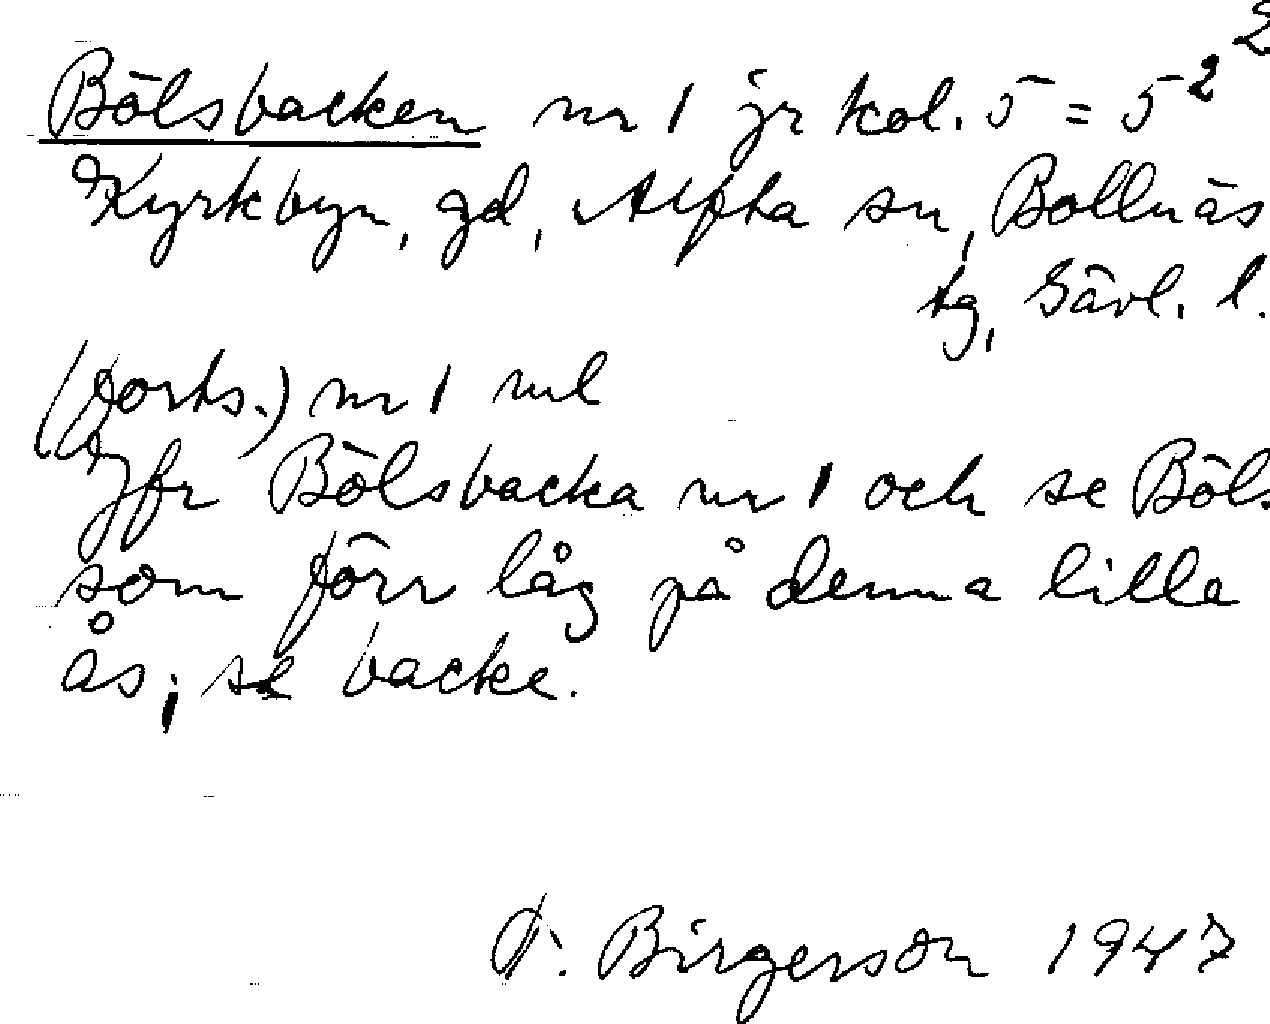 2
Bölsbacken nr 1 jr kol. 5 = 5²
Kyrkbyn, gd, Alfta sn, Bollnäs
tg, Gävl. l.
(forts.) nr 1 ml
Jfr Bölsbacka nr 1 och se Böls
som förr låg på denna lilla
ås; se backe.
F. Birgerson 1947